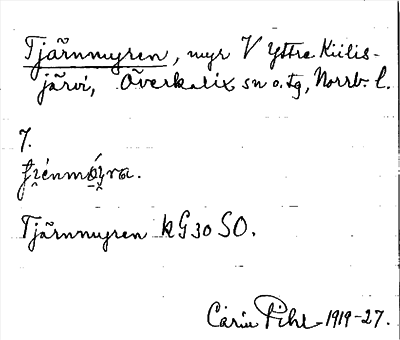 Tjärnmyren, myr V Yttre Kiilis-
järvi, Överkalix sn o. tg, Norrb. l.
7.
Tjärnmyren kG30 SO.
Carin Pihl 1919-27.